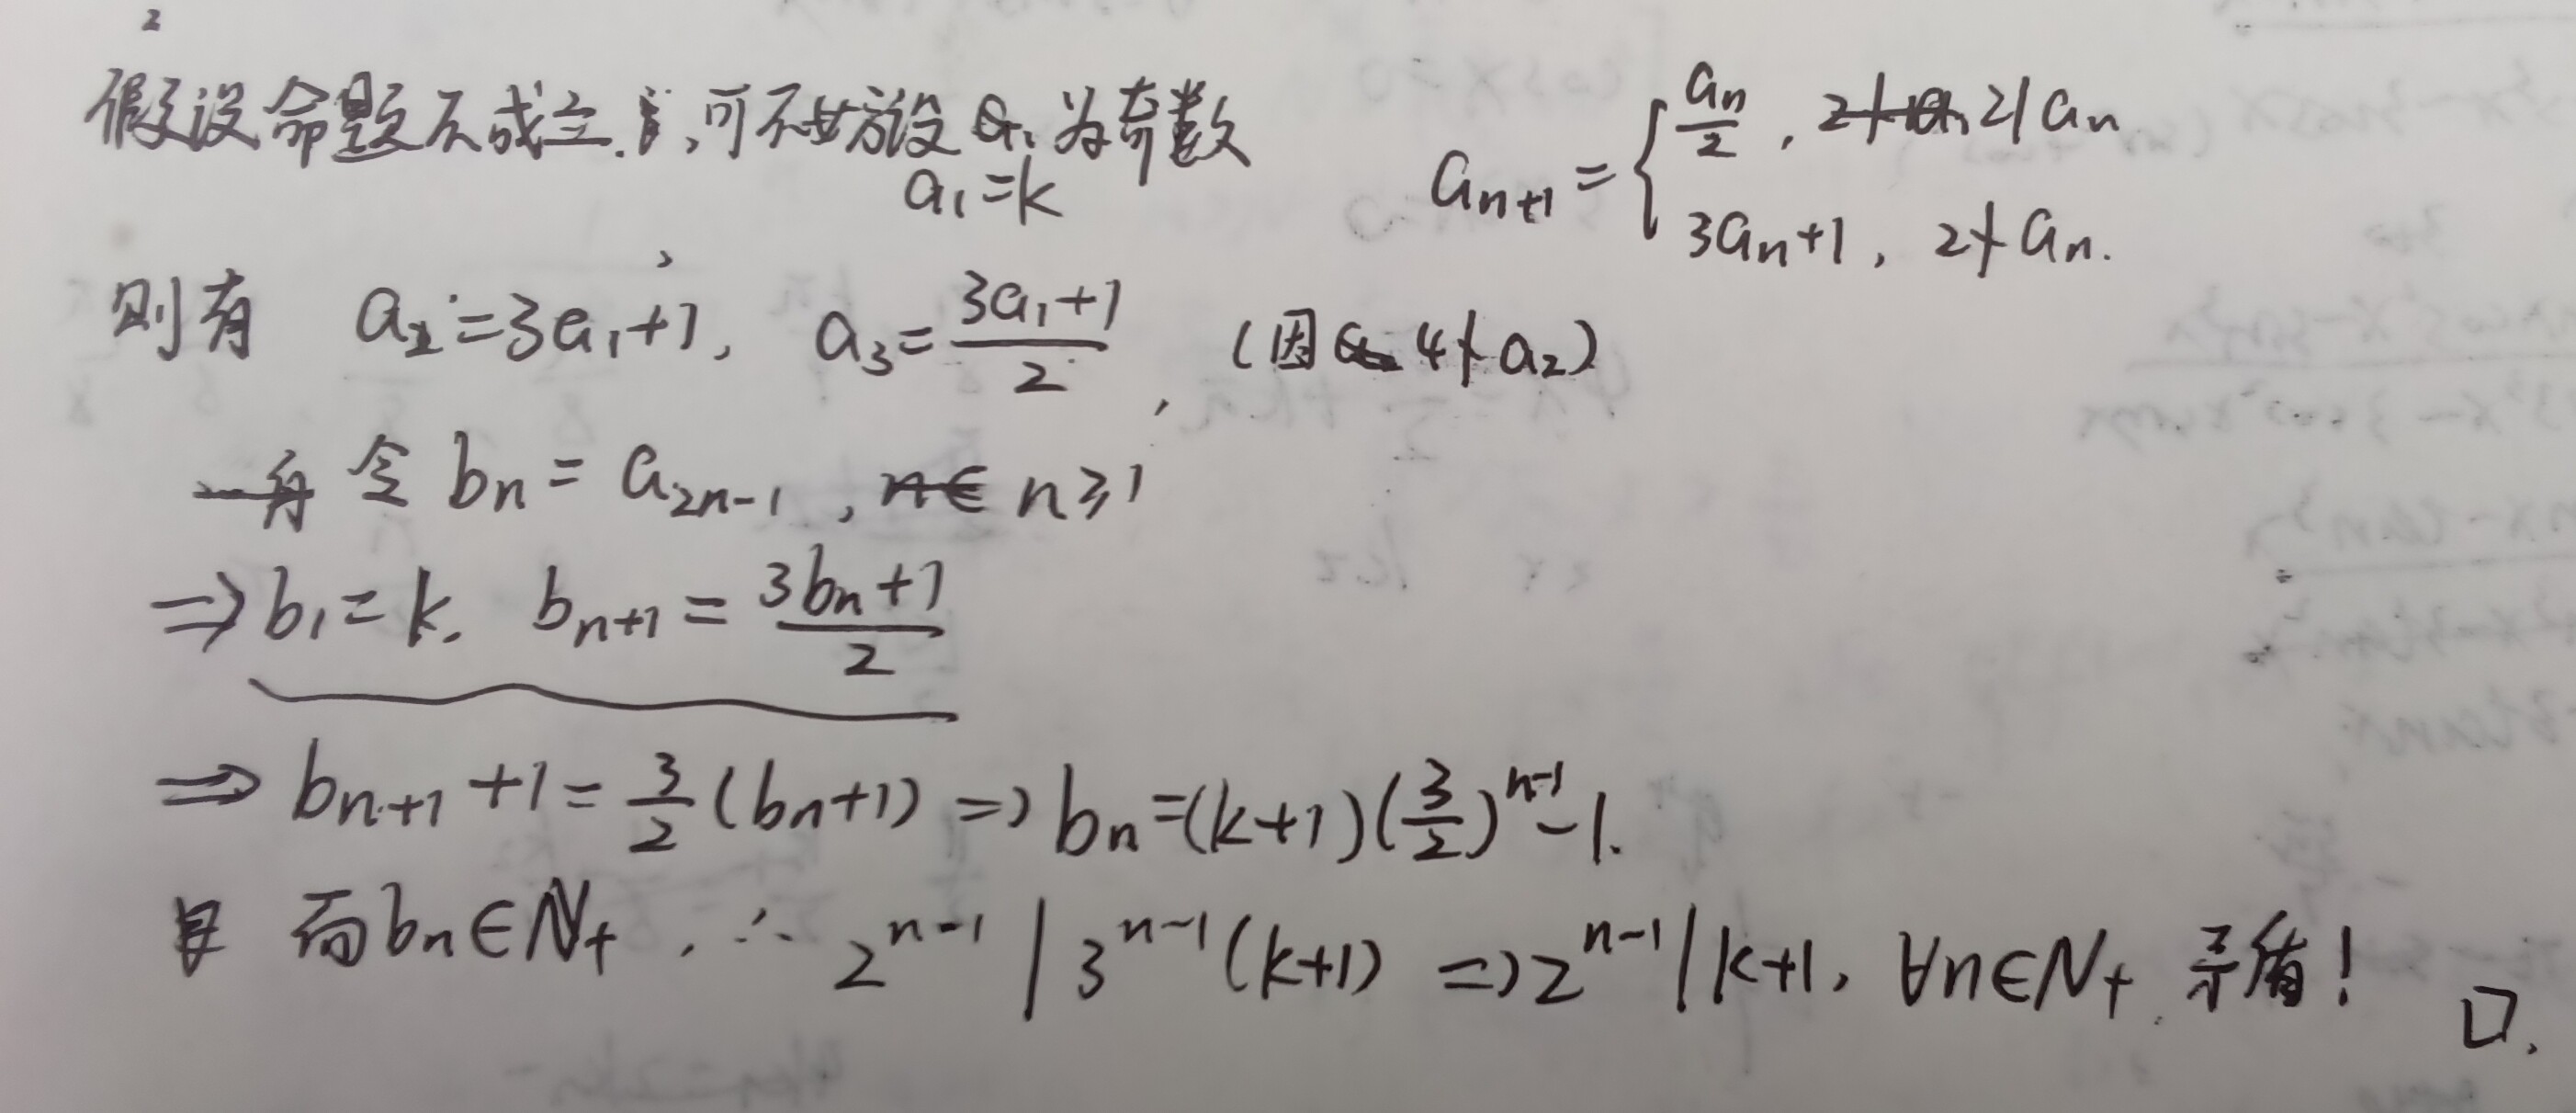 2
假设命题不成立, 可不妨设a₁为奇数
a₁=k
aₙ₊₁={ aₙ/2, 2|aₙ
3aₙ+1, 2∤aₙ.
则有 a₂=3a₁+1, a₃=(3a₁+1)/2, (因 4∤a₂)
令 bₙ=a₂ₙ₋₁, n≥1
⇒b₁=k. bₙ₊₁=(3bₙ+1)/2
⇒bₙ₊₁+1=3/2(bₙ+1)⇒bₙ=(k+1)(3/2)ⁿ⁻¹-1.
而bₙ∈N₊, ∴ 2ⁿ⁻¹|3ⁿ⁻¹(k+1) ⇒2ⁿ⁻¹|k+1, ∀n∈N₊. 矛盾! □.